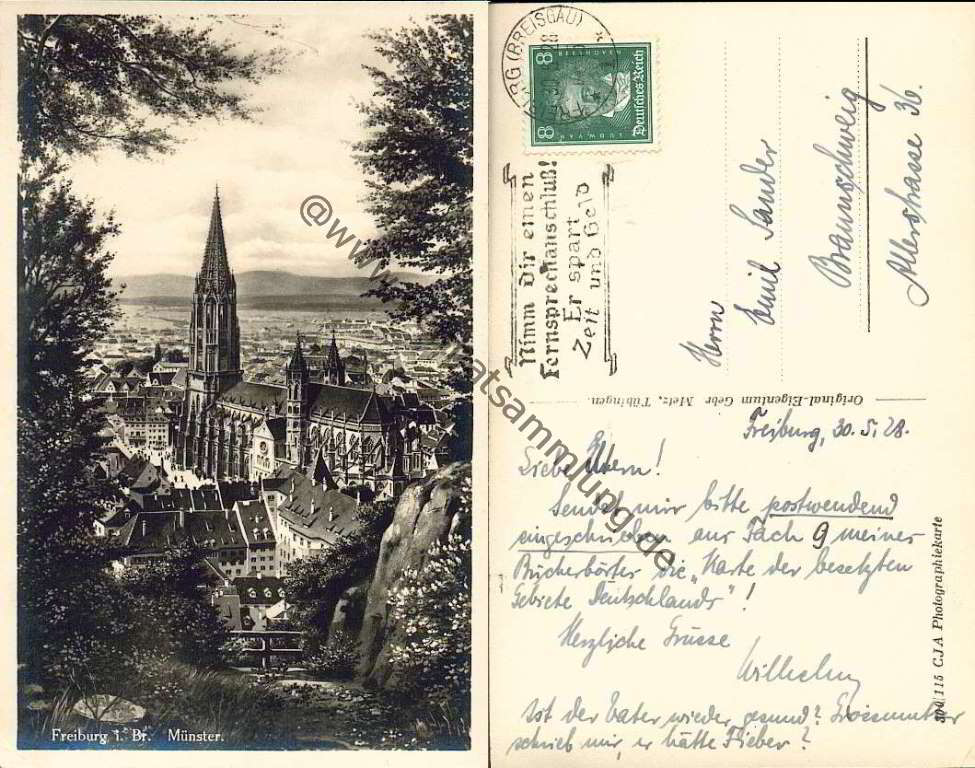 Freiburg i. Br. Münster.
(BREISGAU)
8 Deutsches Reich 8
Nimm Dir einen
Fernsprechanschluß!
Er spart
Zeit und Geld
Herrn
Emil Sander
Braunschweig
Allerstrasse 36.
Original-Eigentum Gebr Metz, Tübingen.
Freiburg, 30.5.28.
Liebe Eltern!
Sendet mir bitte postwendend
eingeschrieben aus Fach 9 meiner
Bücherbörter die „Karte der besetzten
Gebiete Deutschlands"!
Herzliche Grüsse
Wilhelm
Ist der Vater wieder gesund? Grossmutter
schrieb mir, er hätte Fieber?
115 CJA Photographiekarte